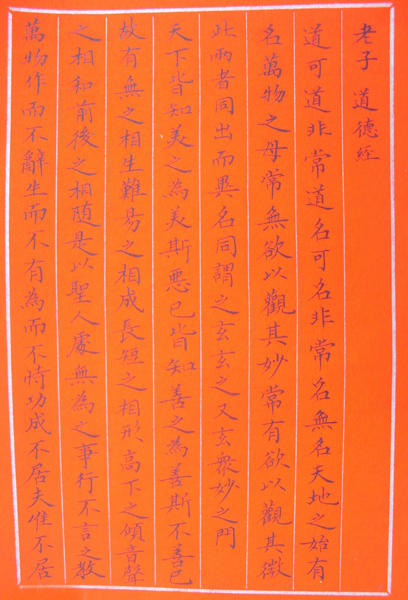 老子 道德經
道可道非常道名可名非常名無名天地之始有
名萬物之母常無欲以觀其妙常有欲以觀其徼
此兩者同出而異名同謂之玄玄之又玄衆妙之門
天下皆知美之為美斯惡已皆知善之為善斯不善已
故有無之相生難易之相成長短之相形高下之傾音聲
之相和前後之相随是以聖人處無為之事行不言之教
萬物作而不辭生而不有為而不恃功成不居夫惟不居